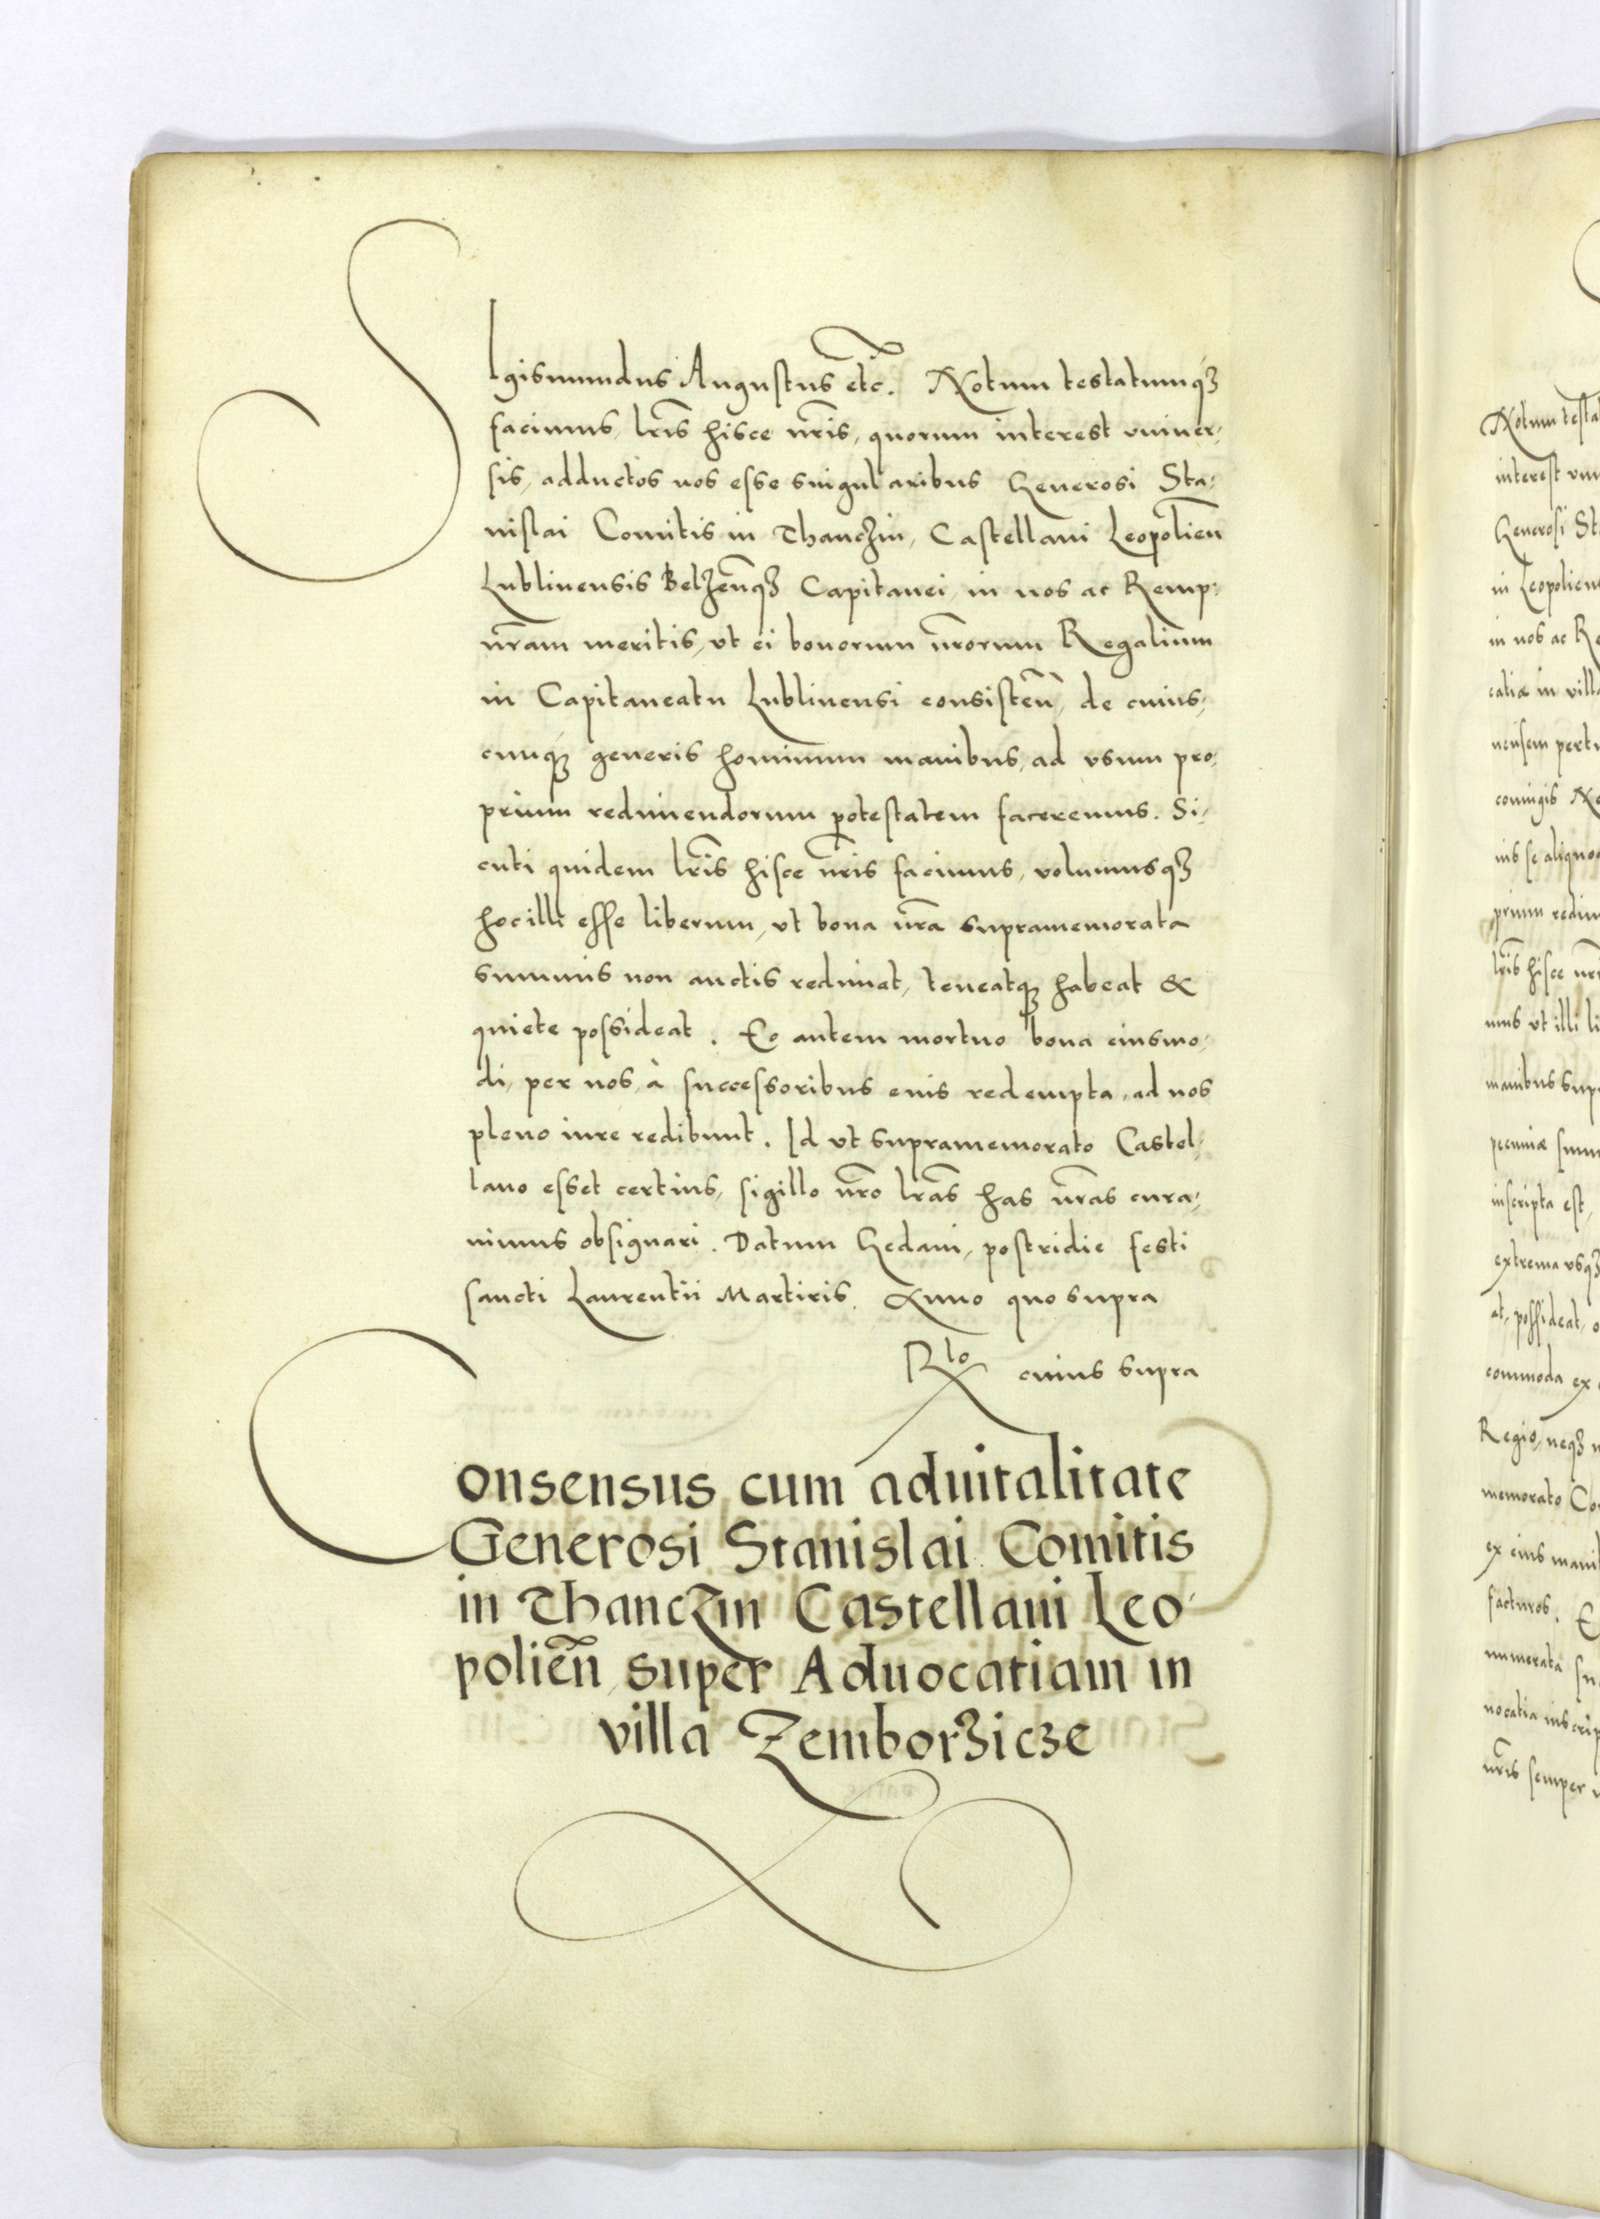 SIgismundus Augustus etc̃. Notum testatumq́ꝫ
facimus, lr̃is hisce nr̃is, quorum interest vniuer,
sis, adductos nos esse singularibus Generosi Sta,
nislai Comitis in Thanczin, Castellani Leopolien̄
Lublinensis Belzen̄qꝫ Capitanei, in nos ac Remp:
nr̃am meritis, vt ei bonorum nr̃orum Regalium
in Capitaneatu Lublinensi consisten̄, de cuius,
cunq́ꝫ generis hominum manibus, ad vsum pro,
prium redimendorum potestatem faceremus. Si,
cuti quidem lr̃is hisce nr̃is facimus, volumusqꝫ
hoc illi esse liberum, vt bona nr̃a supramemorata
summis non auctis redimat, teneatqꝫ habeat &
quiete possideat. Eo autem mortuo bona eiusmo,
di, per nos, à successoribus eius redempta, ad nos
pleno iure redibunt. Id vt supramemorato Castel,
lano esset certius, sigillo nr̃o lr̃as has nr̃as cura,
uimus obsignari. Datum Gedani, postridie festi
sancti Laurentii Martiris. Anno quo supra
Rlo cuius supra
Consensus cum aduitalitate
Generosi Stanislai Comitis
in Thanczin Castellani Leo,
polien̄, super Aduocatiam in
villa Zemborzicze
Notum testa
interest vni
Generosi St
in Leopolien
in nos ac Re
catiæ in villa
nensem pert
coniugis No
ius se aliquo
prium redim
lr̃is hisce nr̃i
mus vt illi li
manibus supr
pecuniæ sum
inscripta est,
extrema vsqꝫ
at, possideat, o
commoda ex
Regio, neqꝫ
memorato Co
ex eius mani
facturos. E
numerata su
uocatia inscrip
nr̃is semper